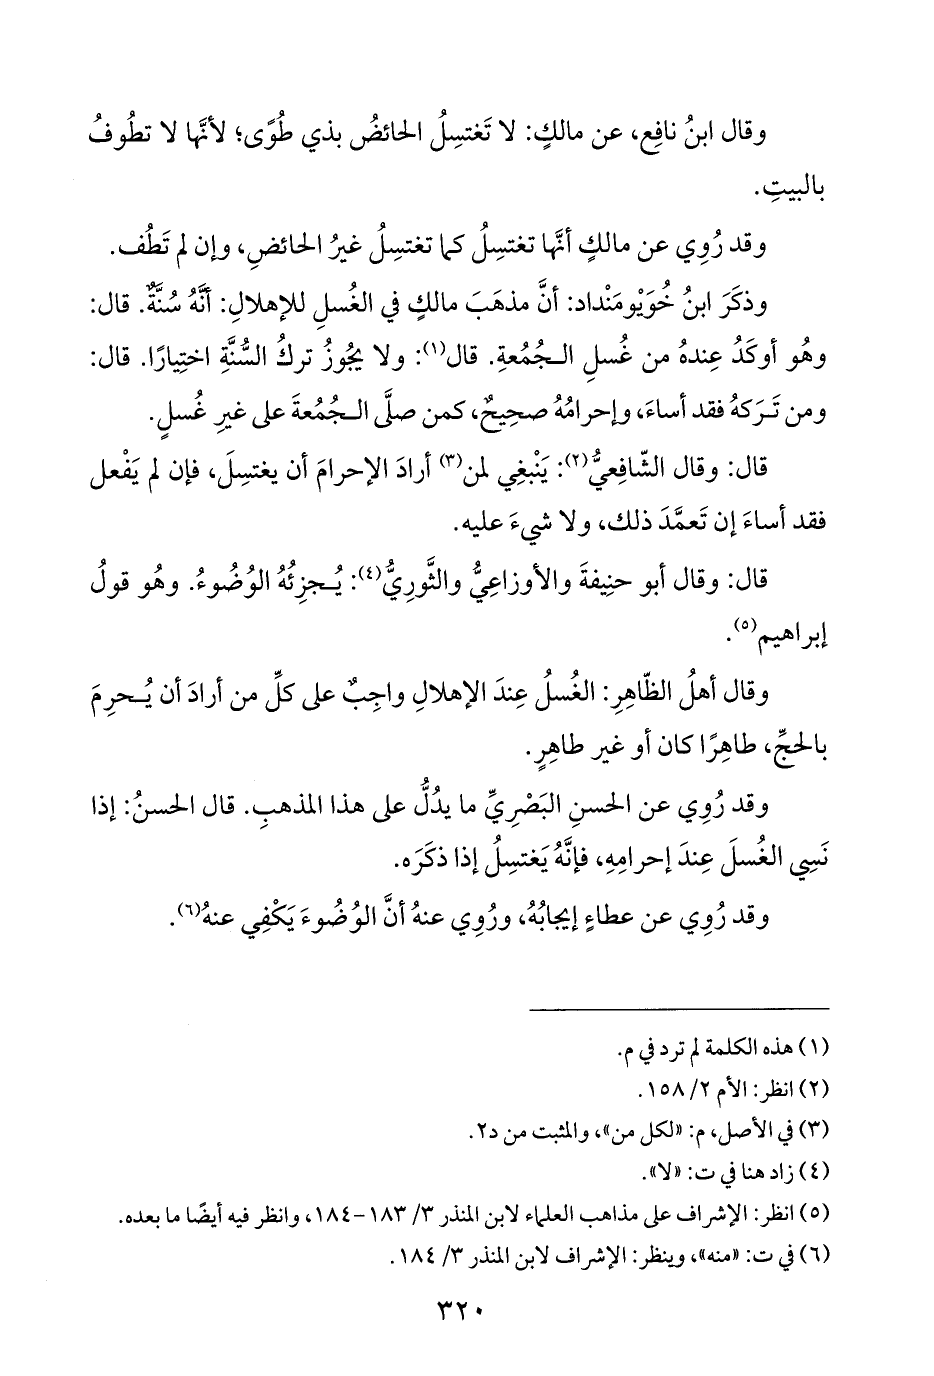 وقال ابنُ نافِعٍ، عن مالكٍ: لا تَغتسِلُ الحائضُ بذي طُوًى؛ لأنَّها لا تطُوفُ
بالبيتِ.
وقد رُوِي عن مالكٍ أنَّها تغتسِلُ كما تغتسِلُ غيرُ الحائضِ، وإن لم تَطُف.
وذكَرَ ابنُ خُوَيْومَنْداد: أنَّ مذهَبَ مالكٍ في الغُسلِ للإهلالِ: أنَّهُ سُنَّةٌ. قال:
وهُو أوكَدُ عِندهُ من غُسلِ الـجُمُعةِ. قال(١): ولا يجُوزُ تركُ السُّنَّةِ اختِيارًا. قال:
ومن تَـرَكهُ فقد أساءَ، وإحرامُهُ صحِيحٌ، كمن صلَّى الـجُمُعةَ على غيرِ غُسلٍ.
قال: وقال الشّافِعيُّ(٢): يَنْبغِي لمن(٣) أرادَ الإحرامَ أن يغتسِلَ، فإن لم يَفْعل
فقد أساءَ إن تَعمَّدَ ذلك، ولا شيءَ عليه.
قال: وقال أبو حنِيفةَ والأوزاعِيُّ والثَّورِيُّ(٤): يُـجزِئُهُ الوُضُوءُ. وهُو قولُ
إبراهيم(٥).
وقال أهلُ الظّاهِرِ: الغُسلُ عِندَ الإهلالِ واجِبٌ على كلِّ من أرادَ أن يُـحرِمَ
بالحجِّ، طاهِرًا كان أو غير طاهِرٍ.
وقد رُوِي عن الحسنِ البَصْرِيِّ ما يدُلُّ على هذا المذهبِ. قال الحسنُ: إذا
نَسِي الغُسلَ عِندَ إحرامِهِ، فإنَّهُ يَغتسِلُ إذا ذكَرَه.
وقد رُوِي عن عطاءٍ إيجابُهُ، ورُوِي عنهُ أنَّ الوُضُوءَ يَكْفِي عنهُ(٦).
(١) هذه الكلمة لم ترد في م.
(٢) انظر: الأم ٢/ ١٥٨.
(٣) في الأصل، م: «لكل من»، والمثبت من د٢.
(٤) زاد هنا في ت: «لا».
(٥) انظر: الإشراف على مذاهب العلماء لابن المنذر ٣/ ١٨٣-١٨٤، وانظر فيه أيضًا ما بعده.
(٦) في ت: «منه»، وينظر: الإشراف لابن المنذر ٣/ ١٨٤.
٣٢٠